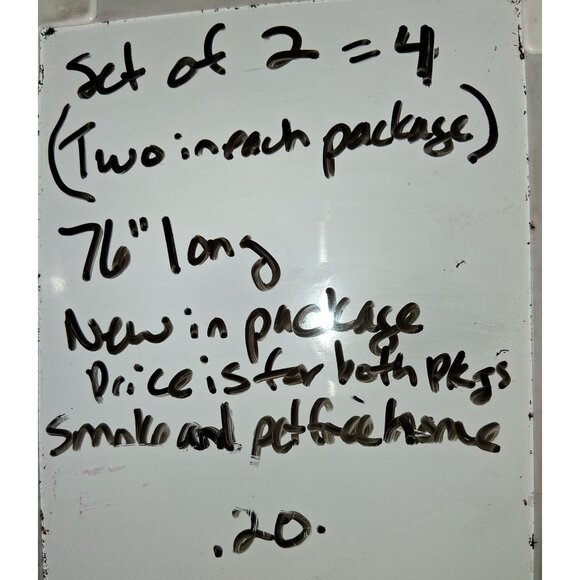 Set of 2 = 4
(Two in each package)
76" long
New in package
Price is for both pkgs
Smoke and pet free home
.20.